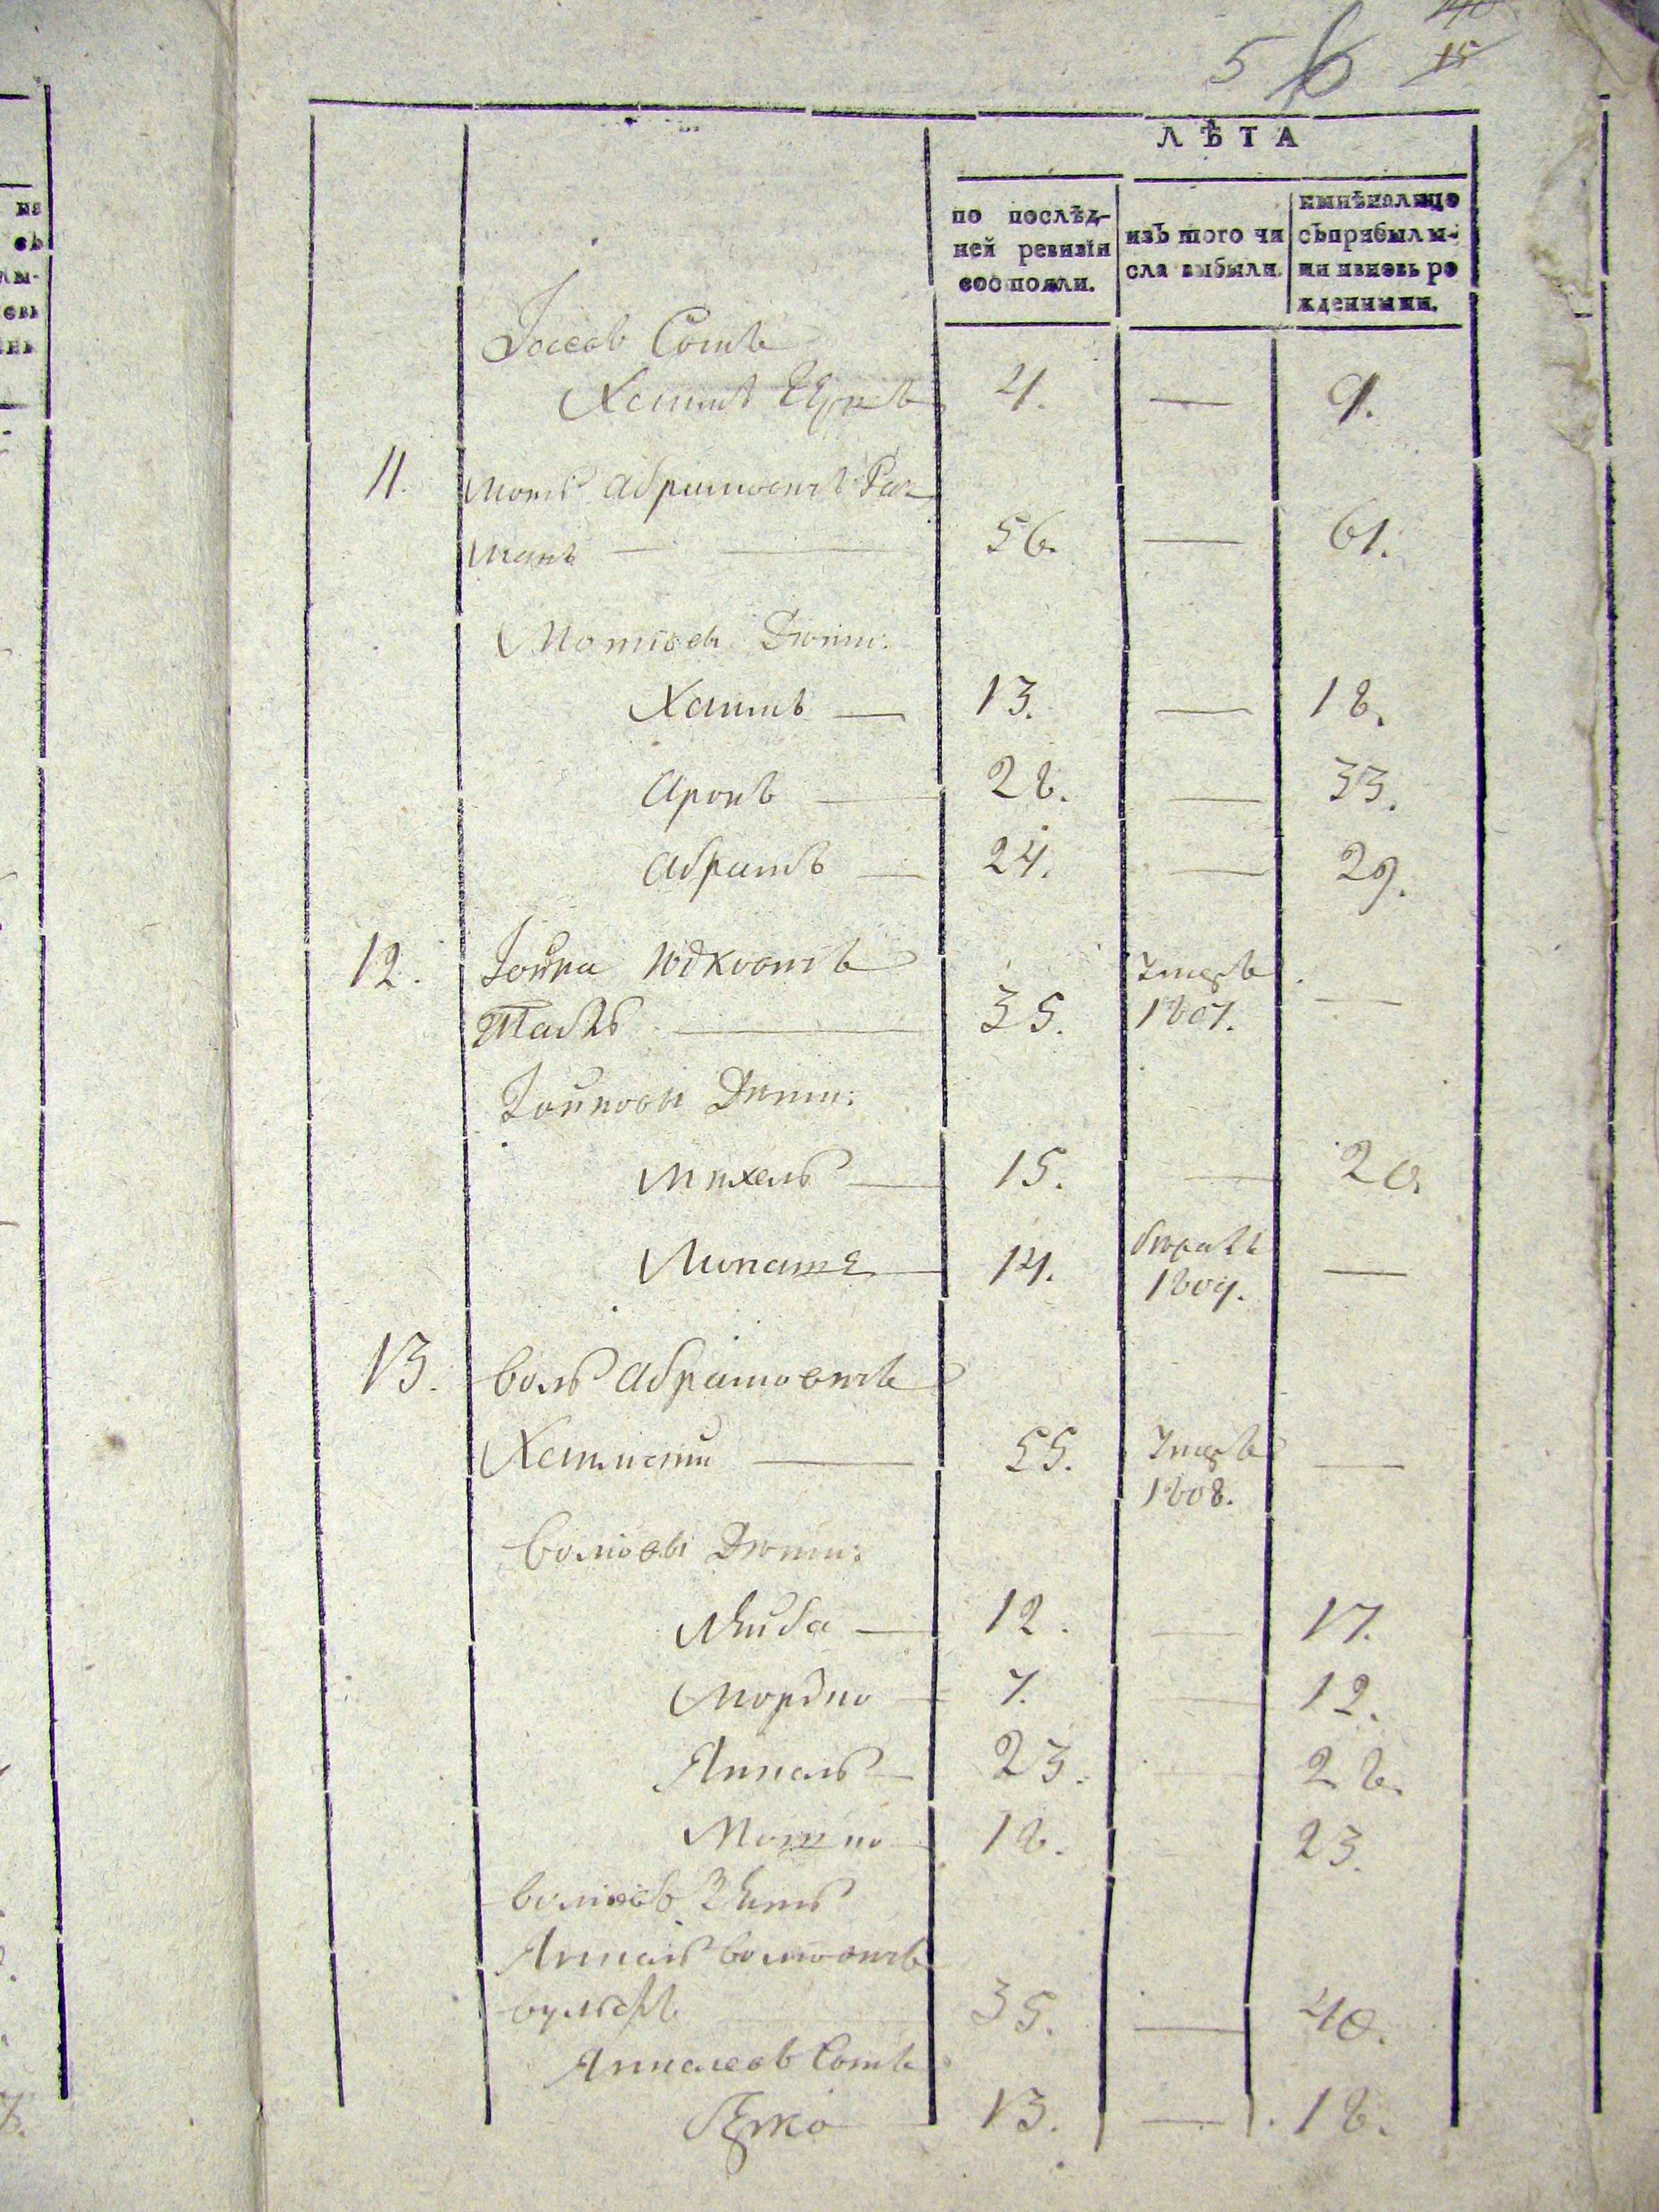 5 6 15
ЛѢТА
по послѣд-
ней ревизіи
состояли.
изъ того чи
сла выбыли
нынѣналицо
съприбылы-
ми ивновь ро
жденными.
Іосевъ Сынъ
Хаимъ 4. — 9.
11. Моть Абрамовичъ Рат
манъ — — 56. — 61.
Мотіовы Дѣти:
Хаимъ — 13. — 18.
Аронъ — 28. — 33.
Абрамъ — 24. — 29.
12. Іойна Юдковичъ 35. умеръ 1807. —
Іойновы Дѣти:
Михель — 15. — 20.
14. бѣжалъ 1809. —
13. Воль Абрамовичъ
55. умеръ 1808. —
Вольовы Дѣти:
Лейба — 12. — 17.
Мордко — 7. — 12.
Янкель — 23. — 28.
Мошко 18. 23.
Вольовъ Зять
Янкель Вольовичъ
Вульфъ 35. — 40.
Янкелевъ Сынъ
13. — 18.